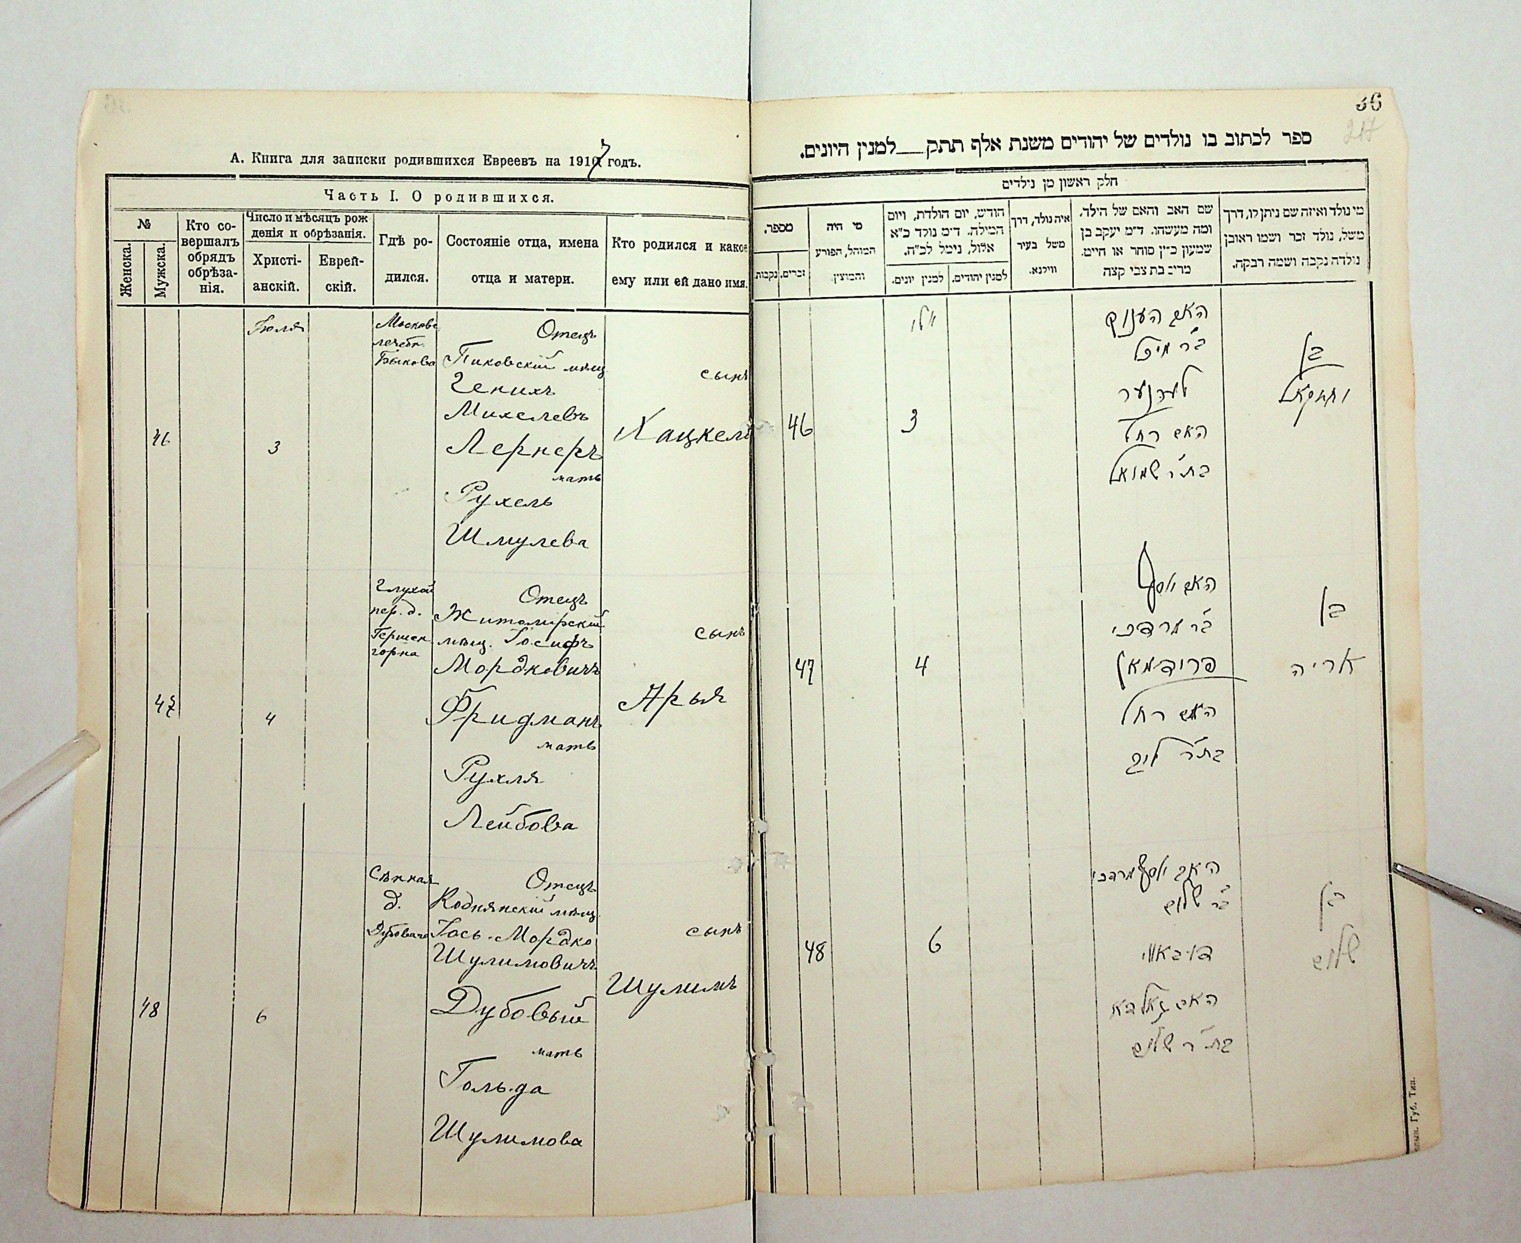 А. Книга для записки родившихся Евреевъ на 1917 годъ.
Часть I. О родившихся.
№
Женска.
Мужска.
Кто со-
вершалъ
обрядъ
обрѣза-
нія.
Число и мѣсяцъ рож
денія и обрѣзанія.
Христі-
анскій.
Еврей-
скій.
Гдѣ ро-
дился.
Состояніе отца, имена
отца и матери.
Кто родился и какое
ему или ей дано имя.
46
Іюля
3
Московс
лечебн.
Быкова
Отецъ
Пиковскій мѣщ
Генихъ
Михелевъ
Лернеръ
мать
Рухель
Шмулева
сынъ
Хацкель
47
4
Глухой
пер. д.
Гершен
горна
Отецъ
Житомирскій
мѣщ. Іосифъ
Мордковичъ
Фридманъ
мать
Рухля
Лейбова
сынъ
Арья
48
6
Сѣнная
д.
Дубоваго
Отецъ
Коднянскій мѣщ.
Іось-Мордко
Шулимовичъ
Дубовый
мать
Гольда
Шулимова
сынъ
Шулимъ
36
217
ספר לכתוב בו נולדים של יהודים משנת אלף תתק__למנין היונים.
חלק ראשון מן נולדים
מספר.
נקבות.
זכרים.
מי היה
המוהל, הפורע
והמוצץ.
חודש, יום הולדת, ויום
המילה. ד״מ נולד כ״א
אלול, נימל לכ״ח.
למנין יונים.
למנין יהודים.
איה נולד, דרך
משל בעיר
ווילנא.
שם האב והאם של הילד,
ומה מעשהו. ד״מ יעקב בן
שמעון כ״ץ סוחר או חייט.
מרים בת צבי קצה
מי נולד ואיזה שם ניתן לו, דרך
משל, נולד זכר ושמו ראובן
נולדה נקבה ושמה רבקה.
46
יולי
3
האב הענוך
ב״ר מיכל
לערנער
האם רחל
בת״ר שמואל
בן
יחזקאל
47
4
האב יוסף
ב״ר מרדכי
פרידמאן
האם רחל
בת״ר ליב
בן
אריה
48
6
האב יוסף מרדכי
ב״ר שלום
דובאווי
האם גאלדא
בת״ר שלום
בן
שלום
Губ. Тип.